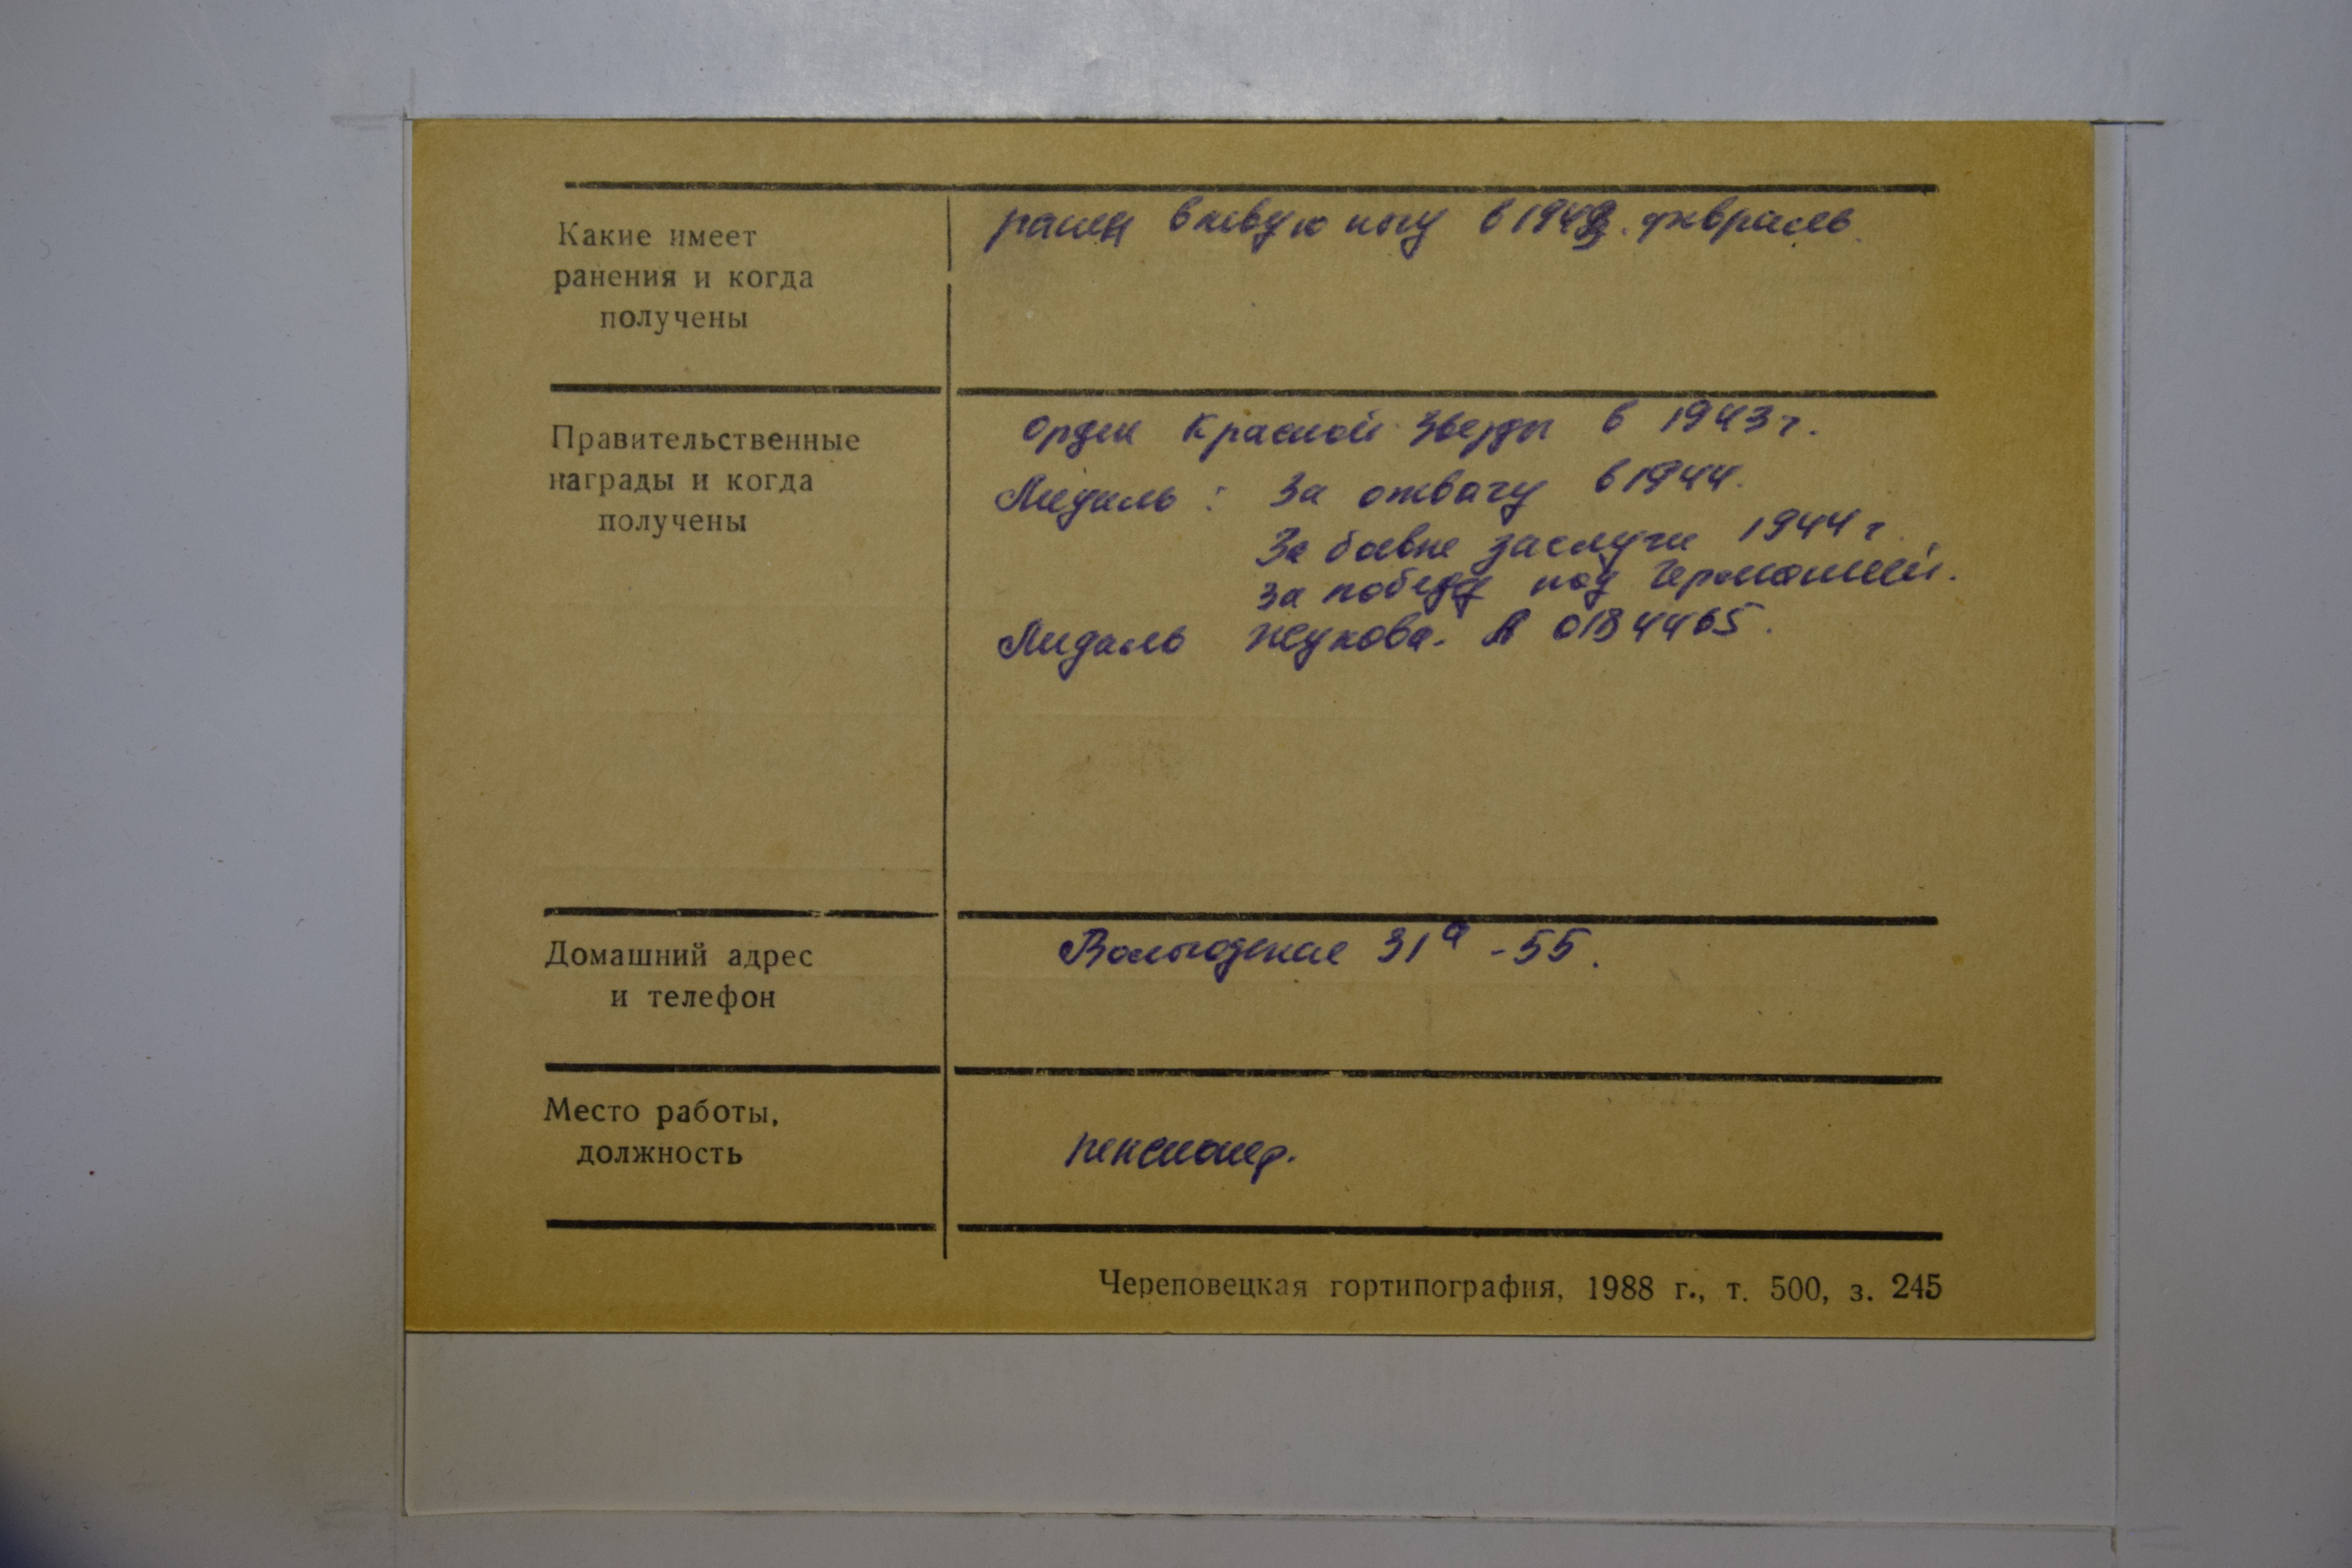 Какие имеет
ранения и когда
получены
ранен в левую ногу в 1943. февраль.
Правительственные
награды и когда
получены
Орден Красной Звезды в 1943 г.
Медаль : За отвагу в 1944.
За боевые заслуги 1944 г
за победу над Германией.
Медаль Жукова. А 0184465.
Домашний адрес
и телефон
Вологодская 31а - 55.
Место работы,
должность
пенсионер.
Череповецкая гортипография, 1988 г., т. 500, з. 245